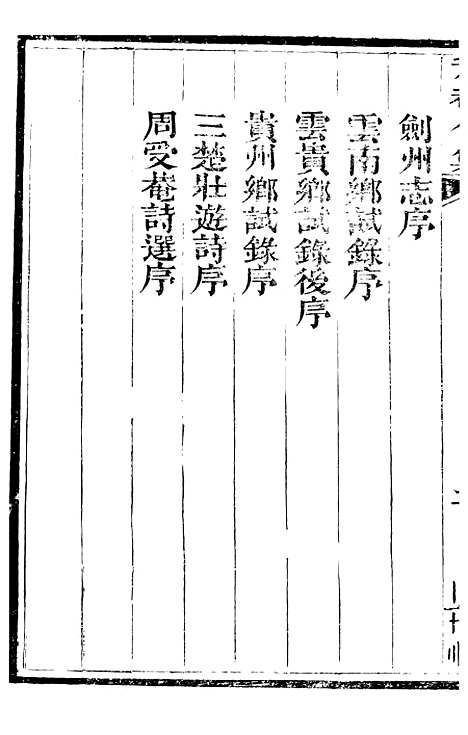 劍州志序
雲南鄉試錄序
雲貴鄉試錄後序
貴州鄉試錄序
三楚壯遊詩序
周受菴詩選序